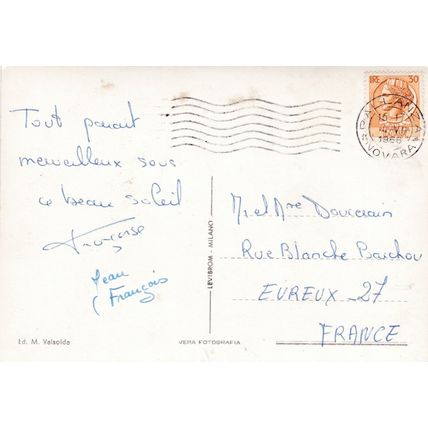 Tout parait
merveilleux sous
ce beau soleil
Françoise
Jean
François
Ed. M. Valsolda
VERA FOTOGRAFIA
LEVIBROM - MILANO
LIRE 30
PALLANZA
15
4.VII
1966
NOVARA
M. et Mme Doucrain
Rue Blanche Barchou
EVREUX - 27
FRANCE